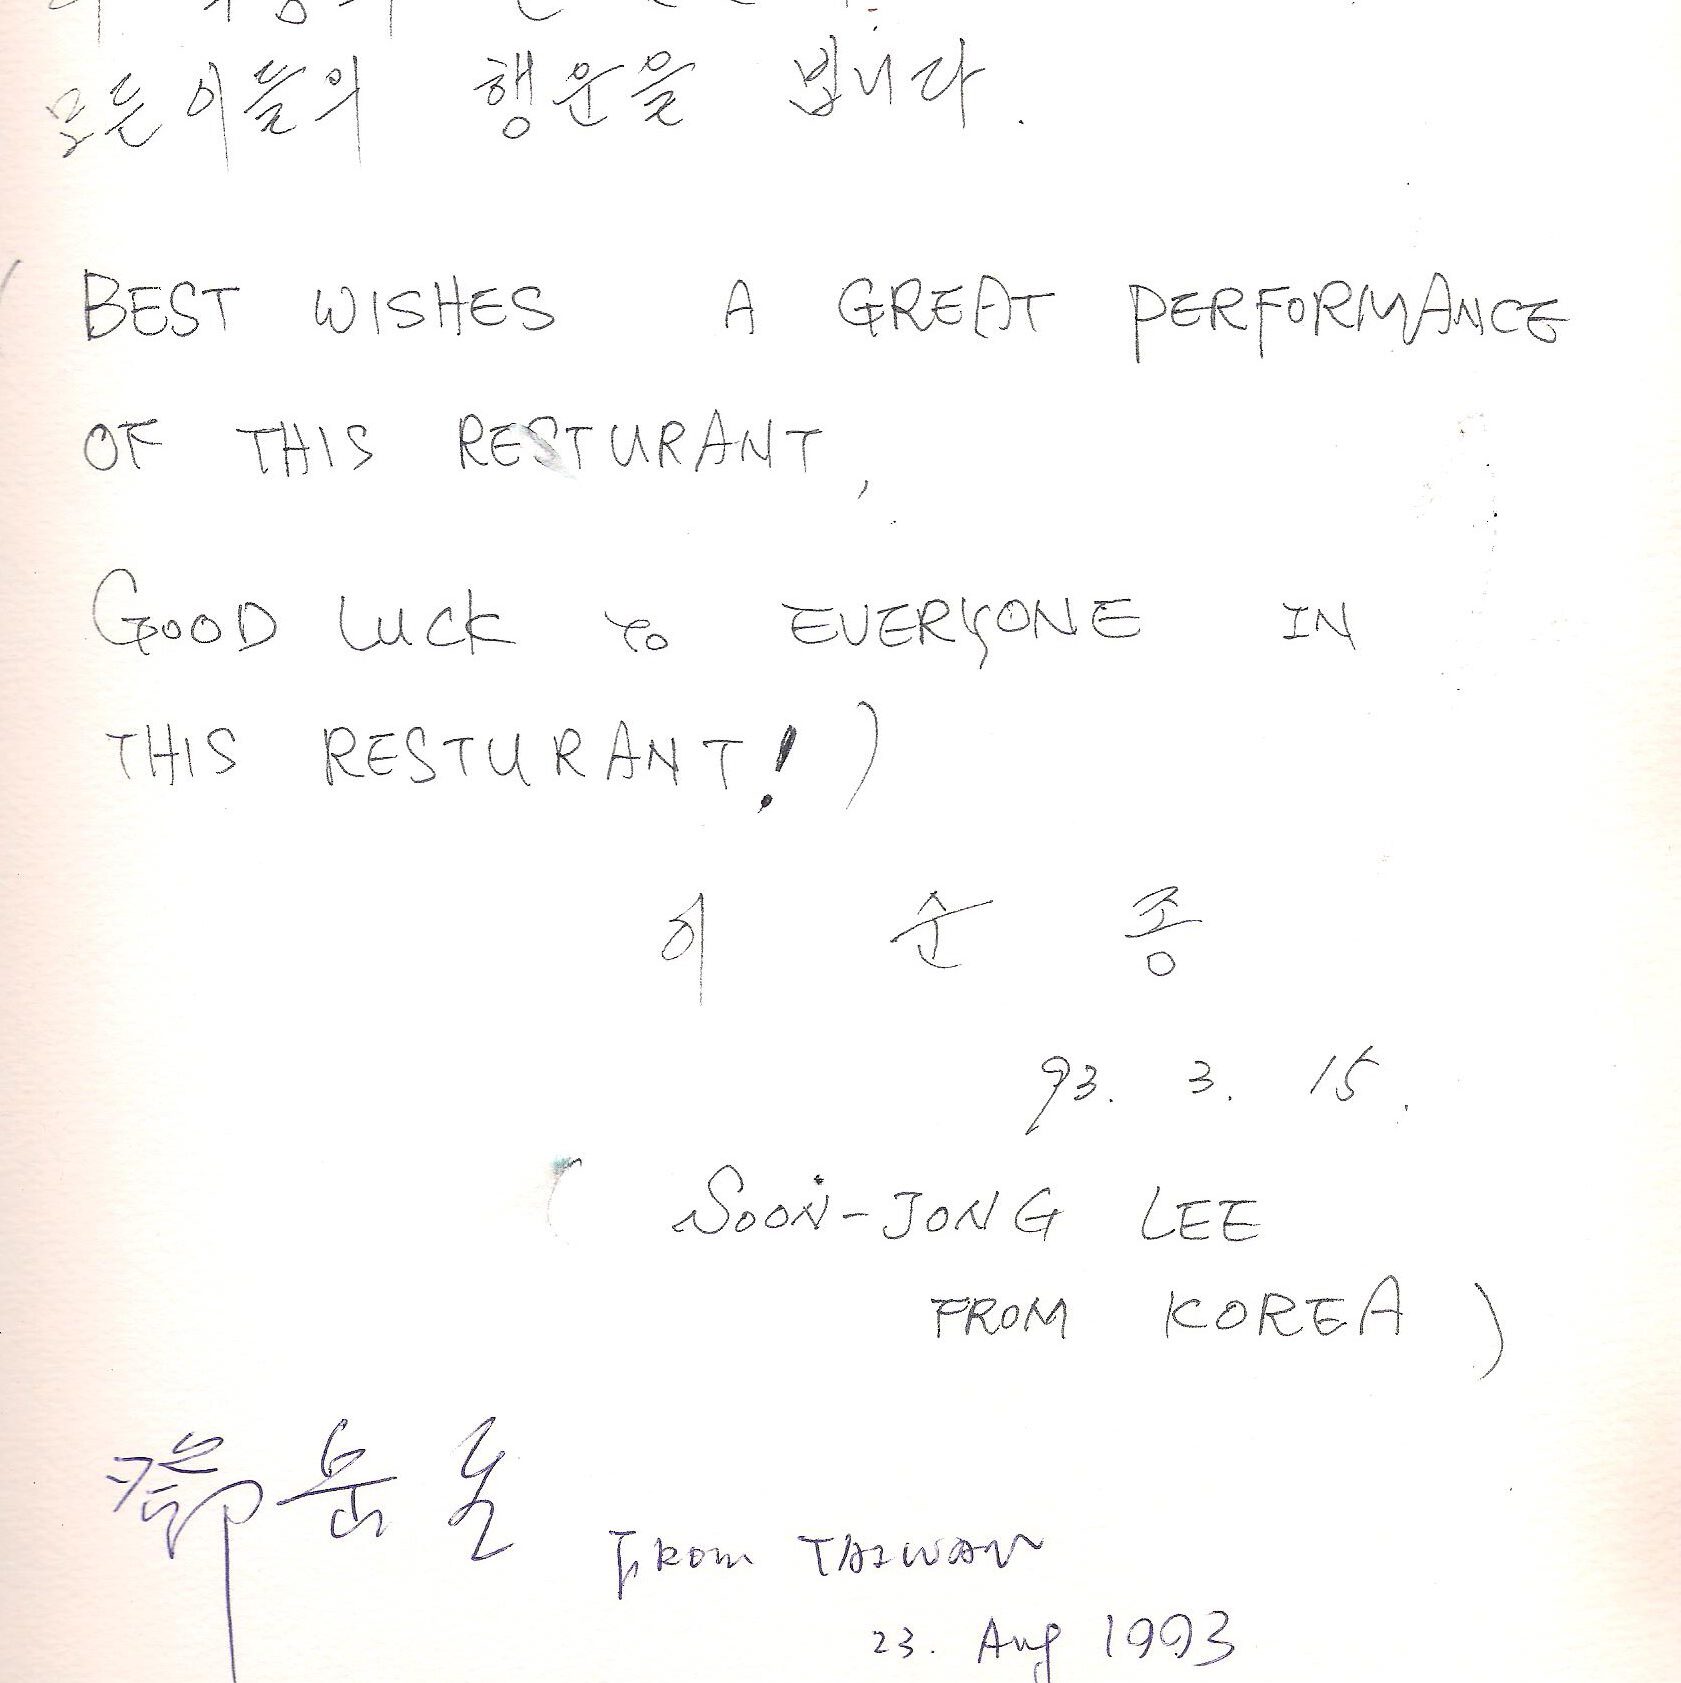 모든 이들의 행운을 빕니다.
(BEST WISHES A GREAT PERFORMANCE
OF THIS RESTURANT,
GOOD LUCK to EVERYONE IN
THIS RESTURANT! )
이 순 종
93. 3. 15.
( SOON-JONG LEE
FROM KOREA )
FROM TAIWAN
23. Aug 1993